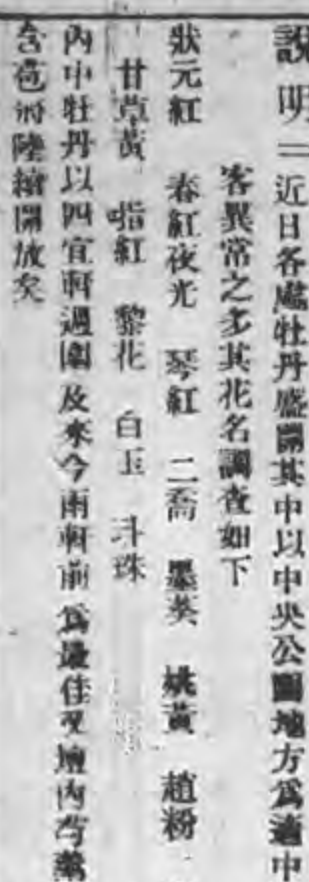 說明＝近日各處牡丹盛開其中以中央公園地方為適中
客異常之多其花名調查如下
狀元紅　春紅夜光　琴紅　二喬　墨葵　姚黃　趙粉
甘草黃　啃紅　黎花　白玉　斗珠
內中牡丹以四宜軒週圍及來今雨軒前為最佳又壇內芍藥
含苞將陸續開放矣